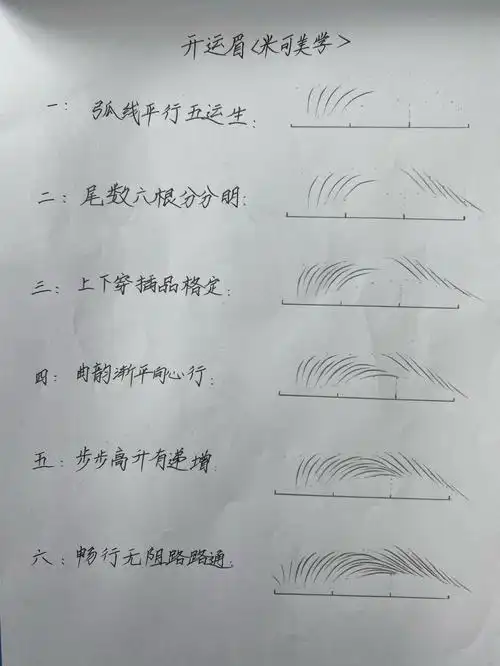 开运眉<米可美学>
一：弧线平行五运生：
二：尾数六根分分明：
三：上下穿插品格定：
四：曲韵渐平向心行：
五：步步高升有递增：
六：畅行无阻路路通：